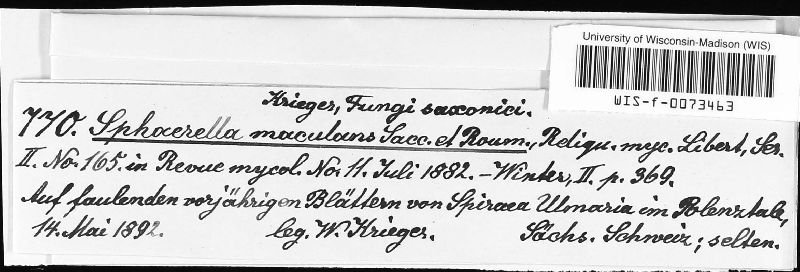 University of Wisconsin-Madison (WIS)
WIS-f-0073463
Krieger, Fungi saxonici.
770. Sphaerella maculans Sacc. et Roum., Reliqu. myc. Libert, Ser.
II. No. 165. in Revue mycol. No. 11. Juli 1882. - Winter, II. p. 369.
Auf faulenden vorjährigen Blättern von Spiraea Ulmaria im Polenztale,
14. Mai 1892. leg. W. Krieger. Sächs. Schweiz; selten.